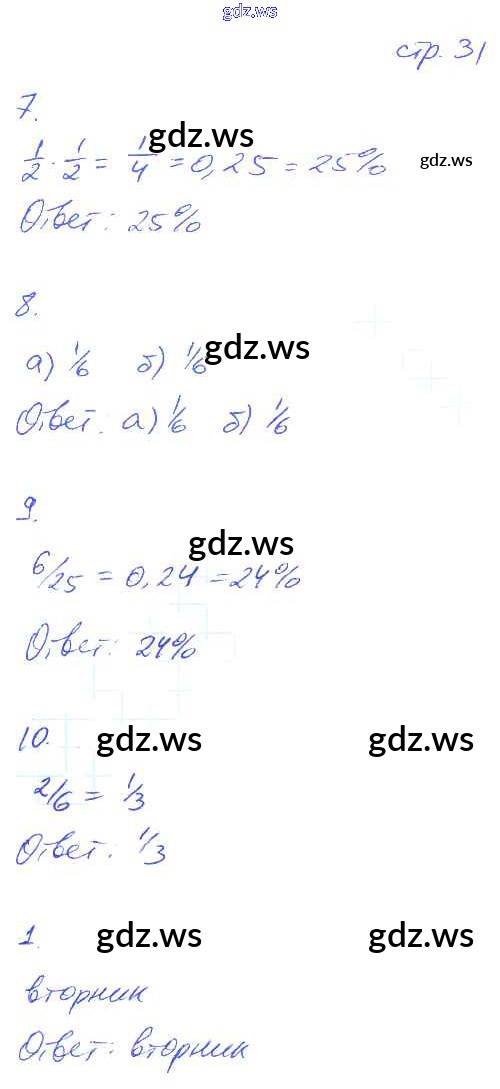 gdz.ws
стр. 31
7.
1/2 · 1/2 = 1/4 = 0,25 = 25%
gdz.ws
gdz.ws
Ответ: 25%
8.
а) 1/6 б) 1/6
gdz.ws
Ответ: а) 1/6 б) 1/6
9.
gdz.ws
6/25 = 0,24 = 24%
Ответ: 24%
10.
gdz.ws gdz.ws
2/6 = 1/3
Ответ: 1/3
1.
gdz.ws gdz.ws
вторник
Ответ: вторник